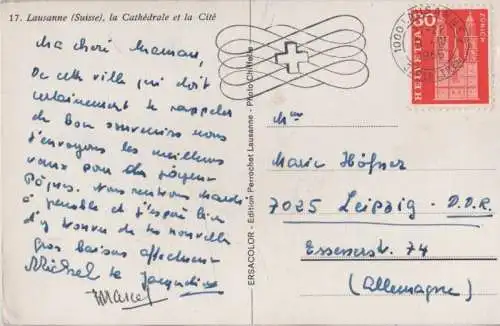 17. Lausanne (Suisse), la Cathédrale et la Cité
Ma chère Maman,
De cette ville qui doit
certainement te rappeler
de bon souvenirs nous
t'envoyons les meilleurs
vœux pour des joyeuses
Pâques. Nous rentrons mardi
à et j'espère bien
d'y trouver de tes nouvelles
gros baisers affectueux
Michel et Jacqueline
Marcel
ERSACOLOR - Edition Perrochet Lausanne - Photo
1000 LAUSANNE
HELVETIA
30
ZÜRICH
Mme
Marie Höfner
7025 Leipzig - D.D.R.
Essenerstr. 74
(Allemagne)